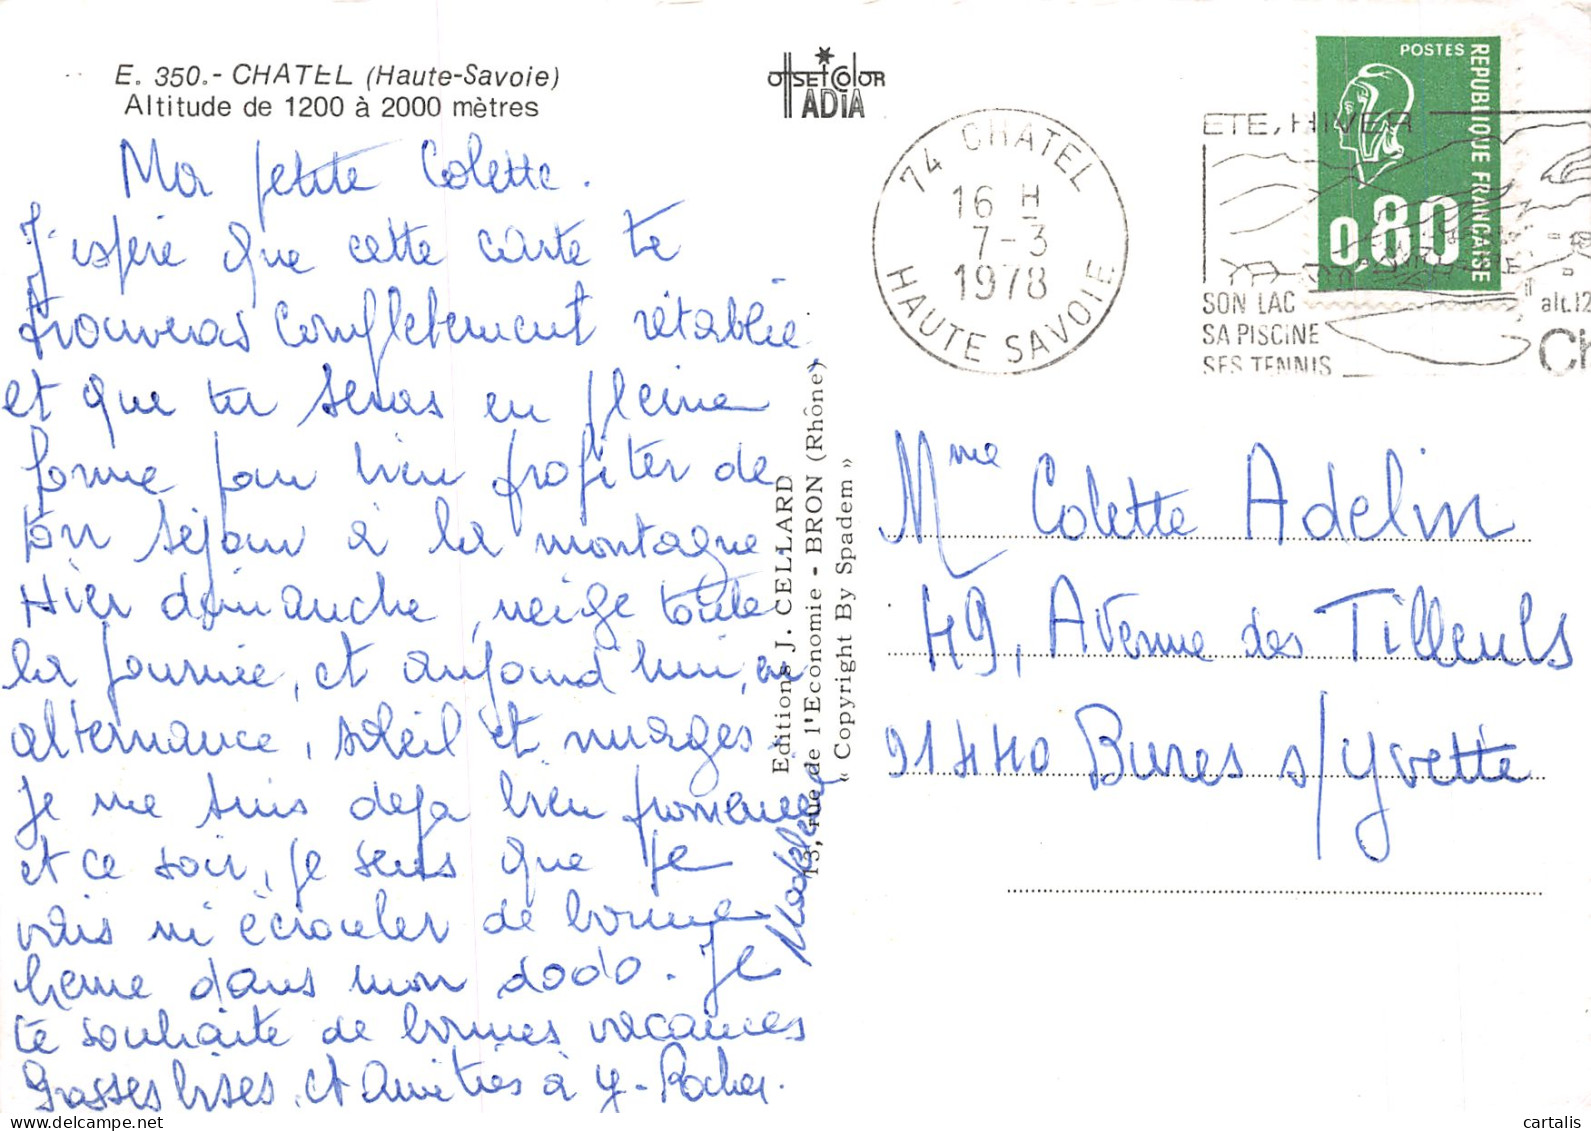 E. 350.- CHATEL (Haute-Savoie)
Altitude de 1200 à 2000 mètres
Ma petite Colette.
J'espère que cette carte te
trouveras complètement rétablie
et que tu seras en pleine
forme pour bien profiter de
ton séjour à la montagne
Hier dimanche, neige toute
la journée, et aujourd'hui, en
alternance, soleil et nuages.
Je me suis deja bien promenée
et ce soir, je sens que je
vais m'écrouler de bonne
heure dans mon dodo. Je
te souhaite de bonnes vacances
Grosses bises, et Amitiés à Y-Rocher.
Madeleine
OFFSET COLOR
ADIA
Editions J. CELLARD
13, rue de l'Economie - BRON (Rhône)
« Copyright By Spadem »
74 CHATEL
16 H
7-3
1978
HAUTE SAVOIE
ETE, HIVER
SON LAC
SA PISCINE
SES TENNIS
alt.12
Ch
POSTES
REPUBLIQUE FRANCAISE
0,80
Mme Colette Adelin
49, Avenue des Tilleuls
91440 Bures s/Yvette
cartalis